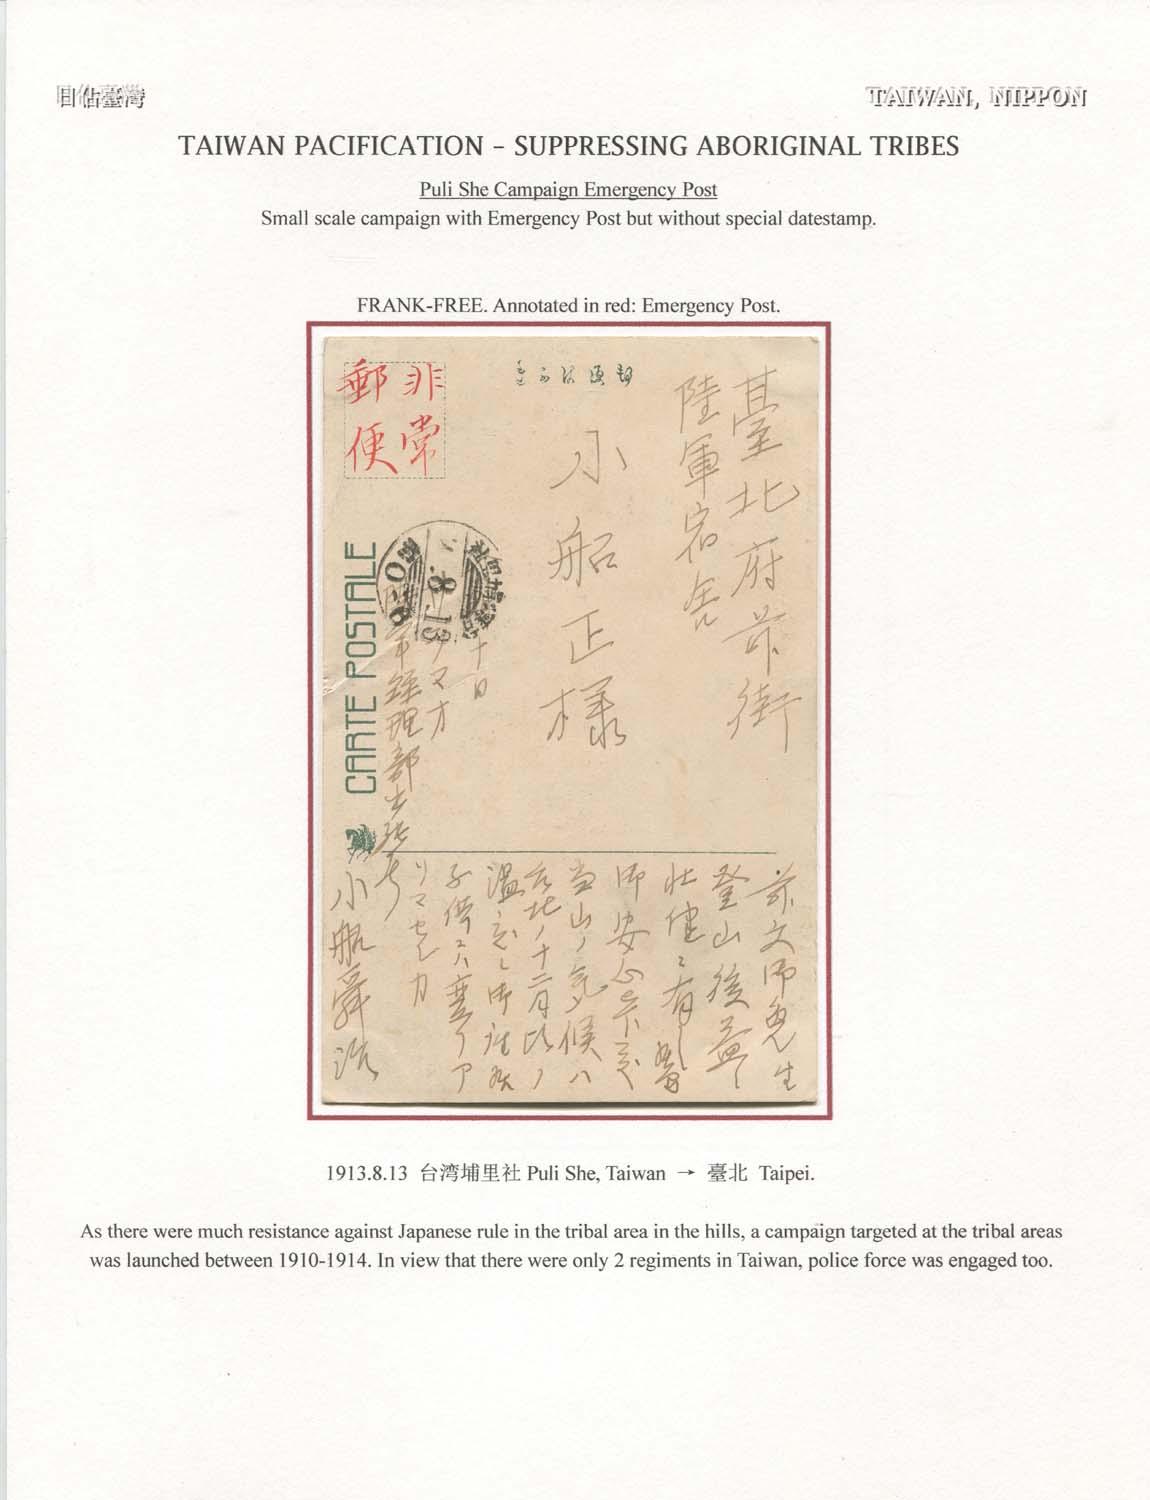 日佔臺灣
TAIWAN, NIPPON
TAIWAN PACIFICATION – SUPPRESSING ABORIGINAL TRIBES
Puli She Campaign Emergency Post
Small scale campaign with Emergency Post but without special datestamp.
FRANK-FREE. Annotated in red: Emergency Post.
非常
郵便
臺北府前街
陸軍宿舍
小船正様
CARTE POSTALE
十日
經理部出張
小船舜治
登山後益
壯健ニ有
御安心
当山ノ氣候ハ
台北ノ十二月頃ノ
子供ハ
リマセンカ
1913.8.13 台湾埔里社 Puli She, Taiwan → 臺北 Taipei.
As there were much resistance against Japanese rule in the tribal area in the hills, a campaign targeted at the tribal areas
was launched between 1910-1914. In view that there were only 2 regiments in Taiwan, police force was engaged too.